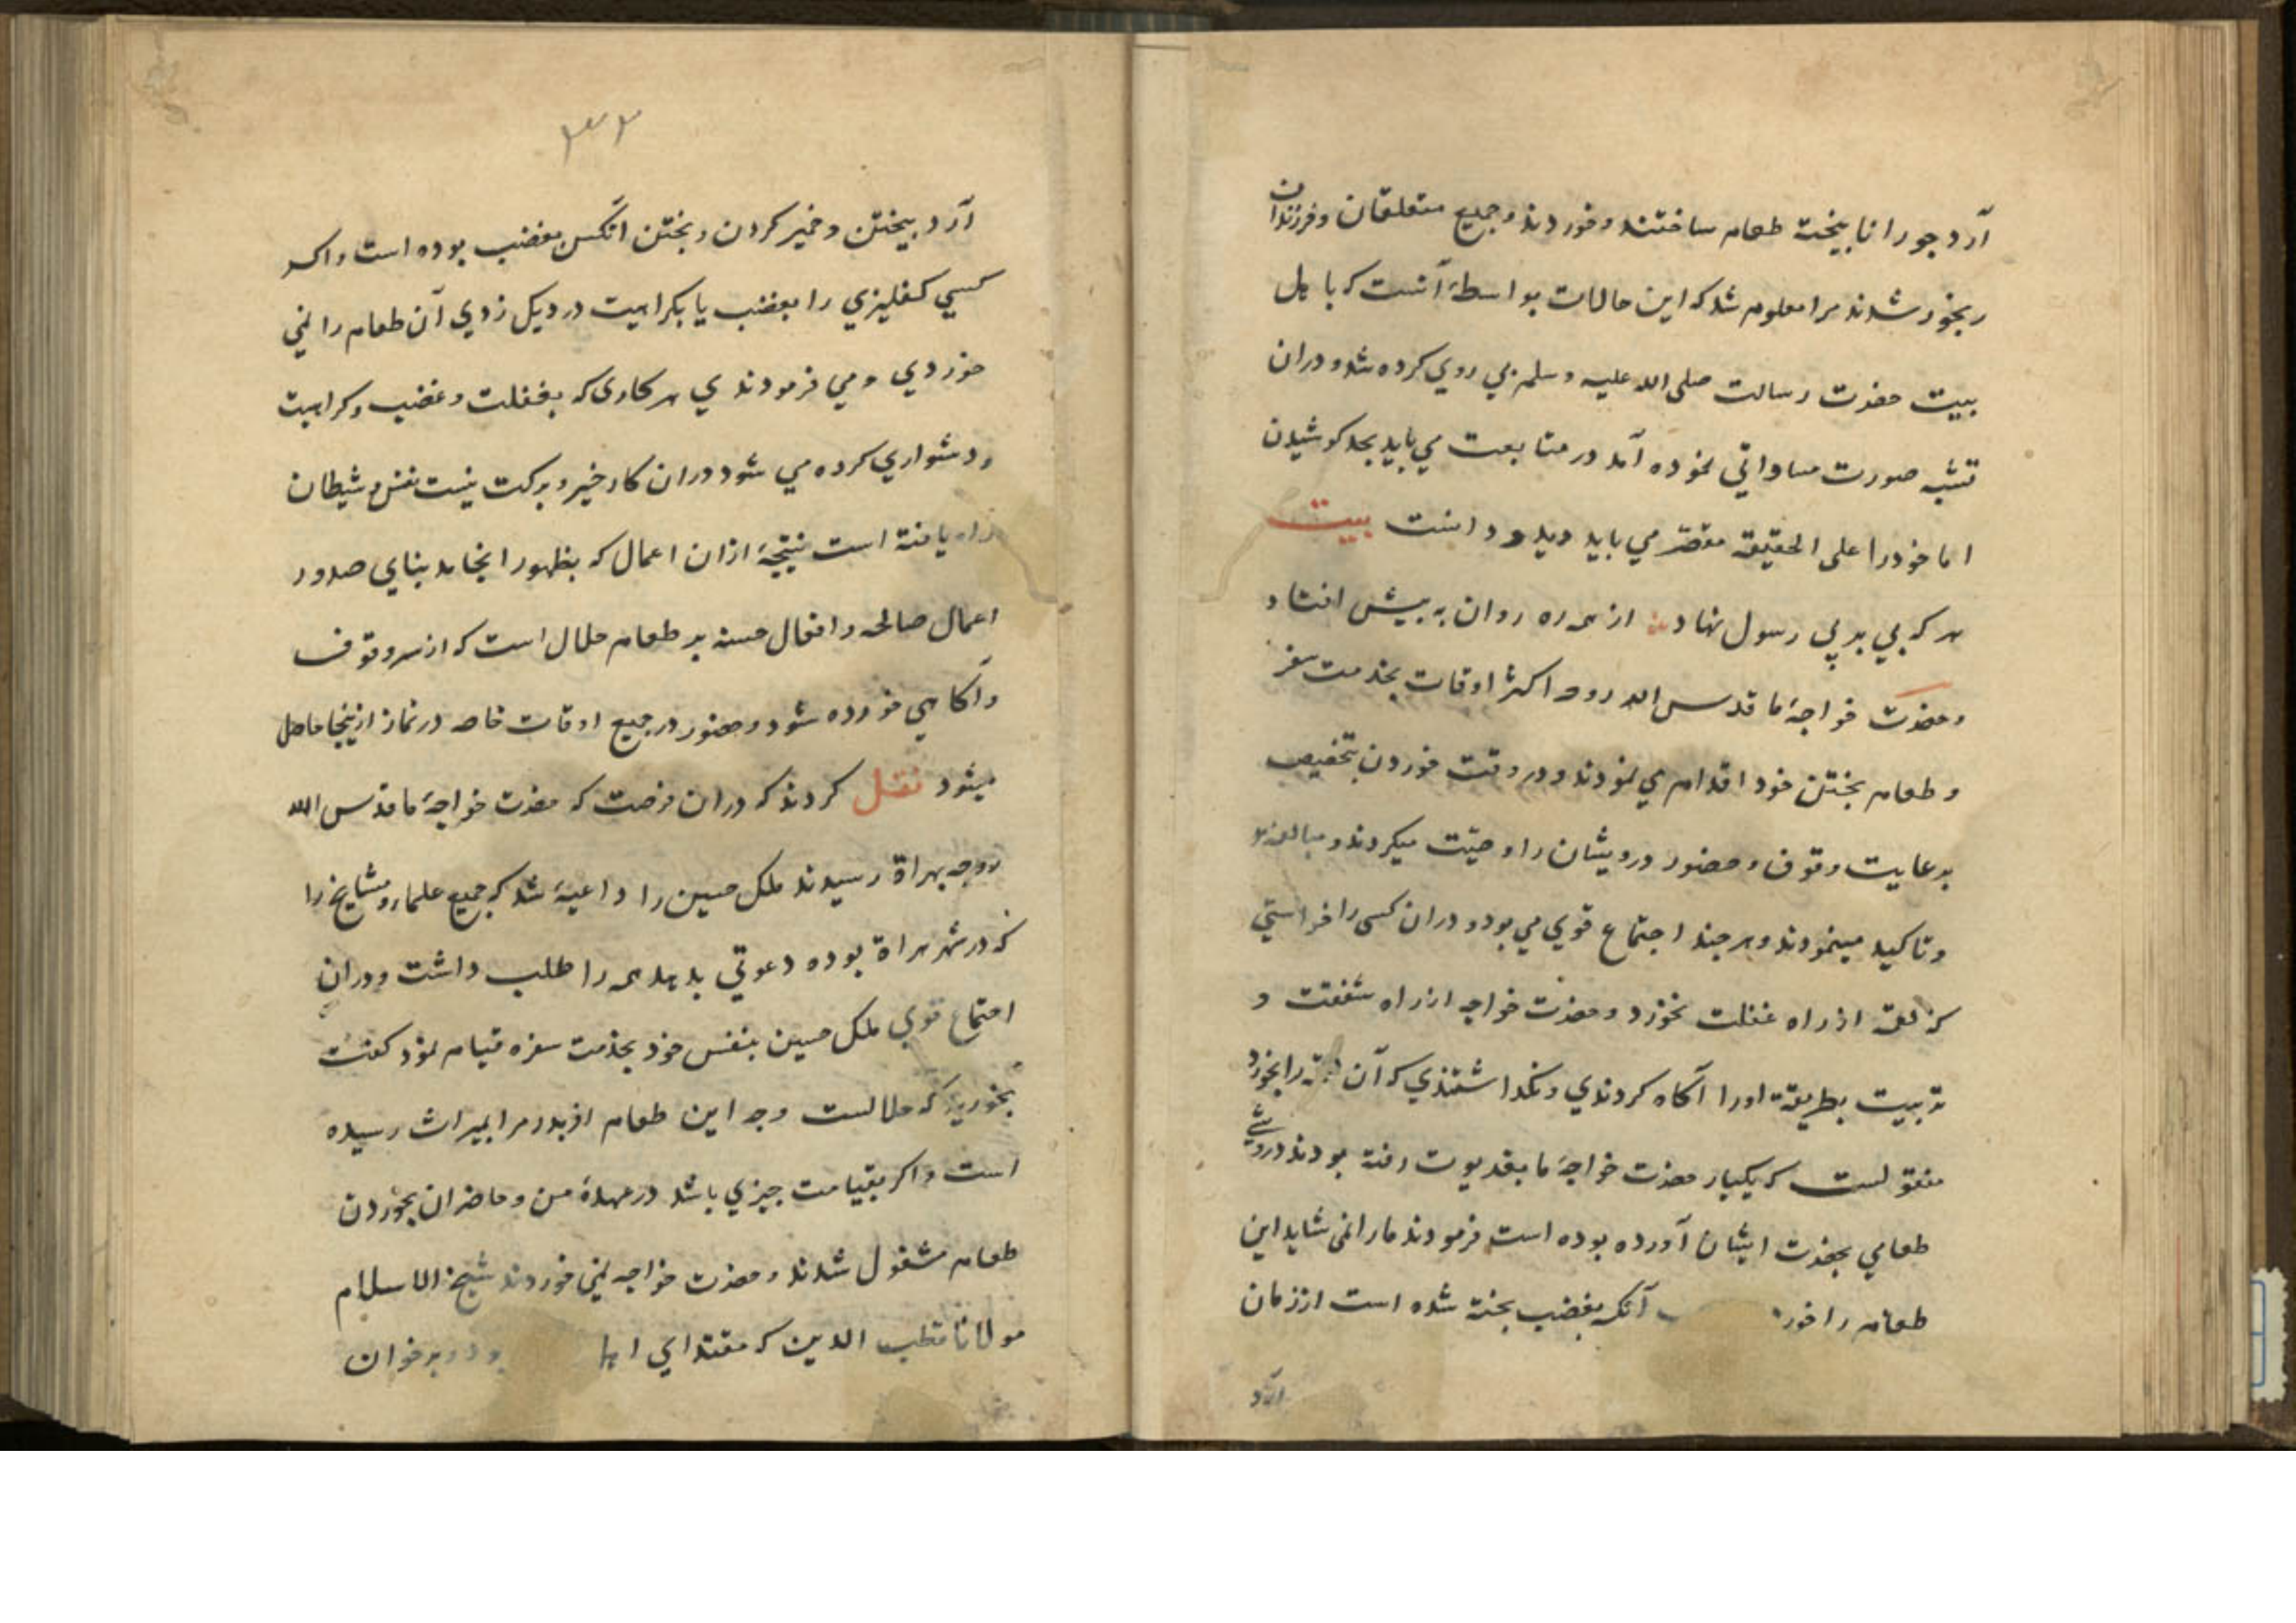 آرد جو را نابیخته طعام ساختند و خوردند و جمیع متعلقان و فرزندان
رنجور شدند مرا معلوم شد که این حالات بواسطۀ آنست که با اهل
بیت حضرت رسالت صلی الله علیه و سلم بی روی کرده شد و دران
تشبه صورت مساواتی نموده آمد در متابعت می باید بجد کوشیدن
اما خود را علی الحقیقه مقصر می باید دید و دانست بیت
هر که پی بر پی رسول نهاد از همه ره روان به پیش افتاد
و حضرت خواجۀ ما قدس الله روحه اکثر اوقات بخدمت سفر
و طعام پختن خود اقدام می نمودند و در وقت خوردن بتخصیص
بر عایت وقوف و حضور درویشان را وصیت میکردند و مبالغه
و تاکید مینمودند و هر چند اجتماع قوی می بود و دران کسی را خواستی
که لقمه از راه غفلت بخورد و حضرت خواجه از راه شفقت و
تربیت بطریقه اورا آگاه کردندی و نگذاشتندی که آن لقمه را بخورد
منقولست که یکبار حضرت خواجۀ ما بغدیوت رفته بودند درویشی
طعامی بحضرت ایشان آورده بوده است فرمودند ما را نمی شاید این
طعام را خور آنکه بغضب پخته شده است از زمان
آرد
۳۳
آرد بیختن و خمیر کردن و پختن آنکس بغضب بوده است و اگر
کسی کفلیزی را بغضب یا بکراهیت در دیک زدی آن طعام را نمی
خوردی و می فرمودندی هر کاری که بغفلت و غضب و کراهیت
و دشواری کرده می شود دران کار خیر و برکت نیست نفس و شیطان
راه یافته است نتیجۀ ازان اعمال که بظهور انجامد بنای صدور
اعمال صالحه و افعال حسنه بر طعام حلال است که از سر وقوف
و آگاهی خورده شود و حضور در جمیع اوقات خاصه در نماز ازینجا حاصل
میشود نقل کردند که دران فرصت که حضرت خواجۀ ما قدس الله
روحه بهراة رسیدند ملک حسین را داعیۀ شد که جمیع علما و مشایخ را
که در شهر هراة بوده دعوتی بدهد همه را طلب داشت و دران
اجتماع قوی ملک حسین بنفس خود بخدمت سفره قیام نمود گفت
بخورید که حلالست وجه این طعام از پدر مرا بمیراث رسیده
است و اکر بقیامت چیزی باشد در عهدۀ من و حاضران بخوردن
طعام مشغول شدند و حضرت خواجه نمی خوردند شیخ الاسلام
مولانا قطب الدین که مقتدای بود و بر خوان